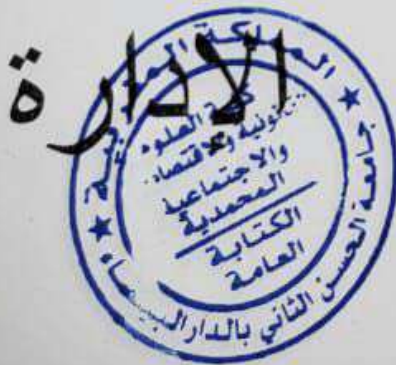 الادارة
المملكة المغربية
جامعة الحسن الثاني بالدار البيضاء
كلية العلوم
القانونية والاقتصادية
والاجتماعية
المحمدية
الكتابة
العامة